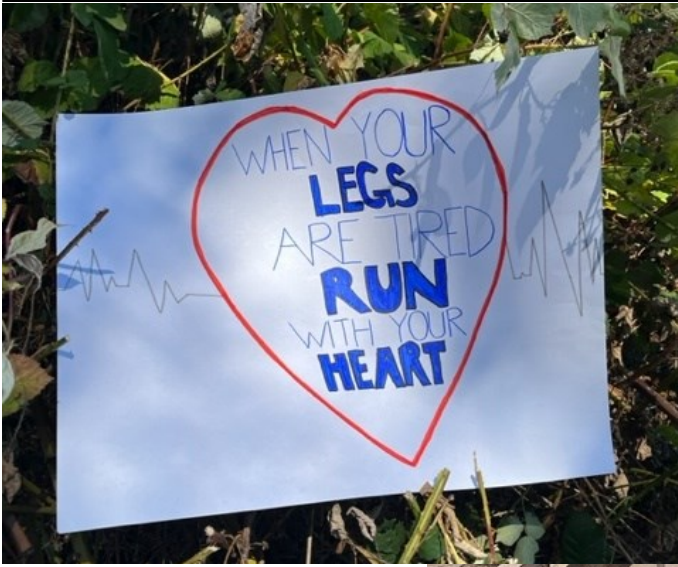 WHEN YOUR
LEGS
ARE TIRED
RUN
WITH YOUR
HEART